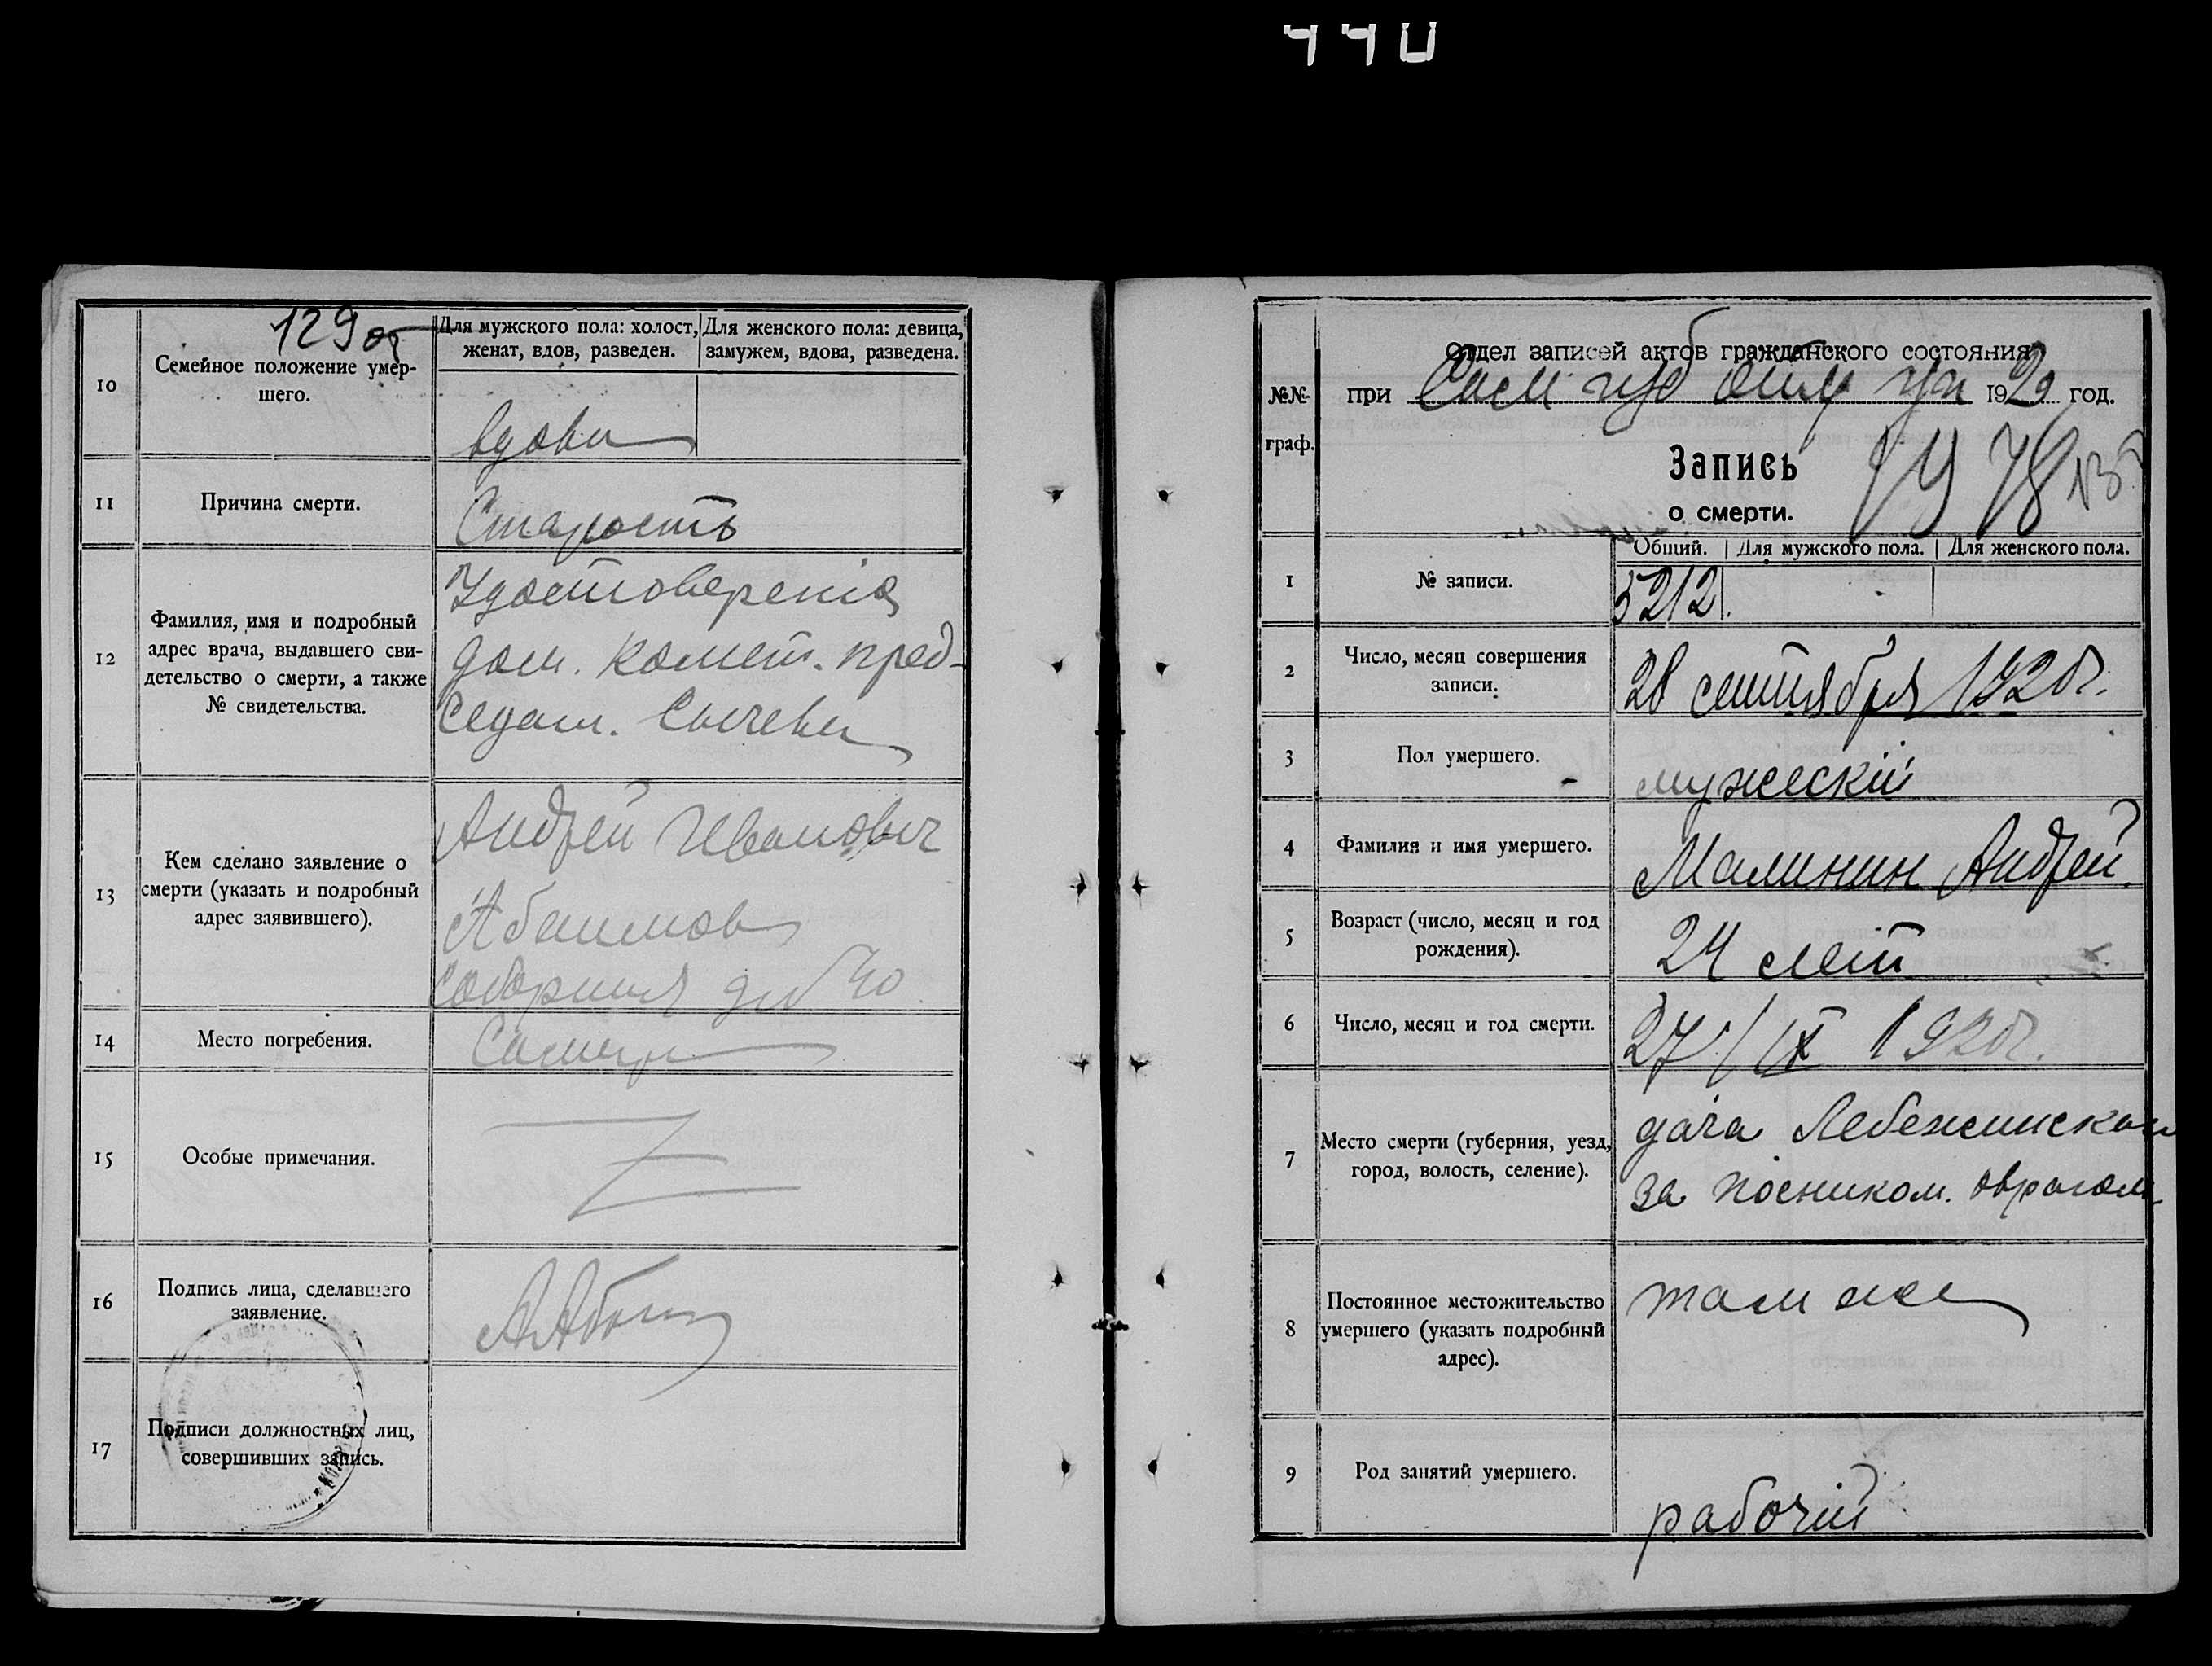 129об
10
Семейное положение умер-
шего.
Для мужского пола: холост,
женат, вдов, разведен.
Для женского пола: девица,
замужем, вдова, разведена.
вдова
11
Причина смерти.
Старость
12
Фамилия, имя и подробный
адрес врача, выдавшего сви-
детельство о смерти, а также
№ свидетельства.
Удостоверенія
дом. комет. пред-
седат. Сычева
13
Кем сделано заявление о
смерти (указать и подробный
адрес заявившего).
Андрей Иванович
Абаимов
Соборная д№ 40
14
Место погребения.
Самара
15
Особые примечания.
16
Подпись лица, сделавшего
заявление.
17
Подписи должностных лиц,
совершивших запись.
№№
граф.
Отдел записей актов гражданского состояния
при Сам губ отд уп 1920 год.
Запись
о смерти.
1
№ записи.
Общий.
Для мужского пола.
Для женского пола.
5212
2
Число, месяц совершения
записи.
28 сентября 1920г.
3
Пол умершего.
мужескій
4
Фамилия и имя умершего.
Малинин Андрей
5
Возраст (число, месяц и год
рождения).
24 лет
6
Число, месяц и год смерти.
27/IX 1920г.
7
Место смерти (губерния, уезд,
город, волость, селение).
дача
за оврагом
8
Постоянное местожительство
умершего (указать подробный
адрес).
там же
9
Род занятий умершего.
рабочій